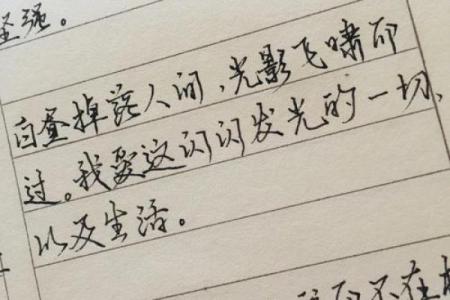 坚强。
白昼掉落人间,光影飞啸而
过。我爱这闪闪发光的一切、
以及生活。
不在